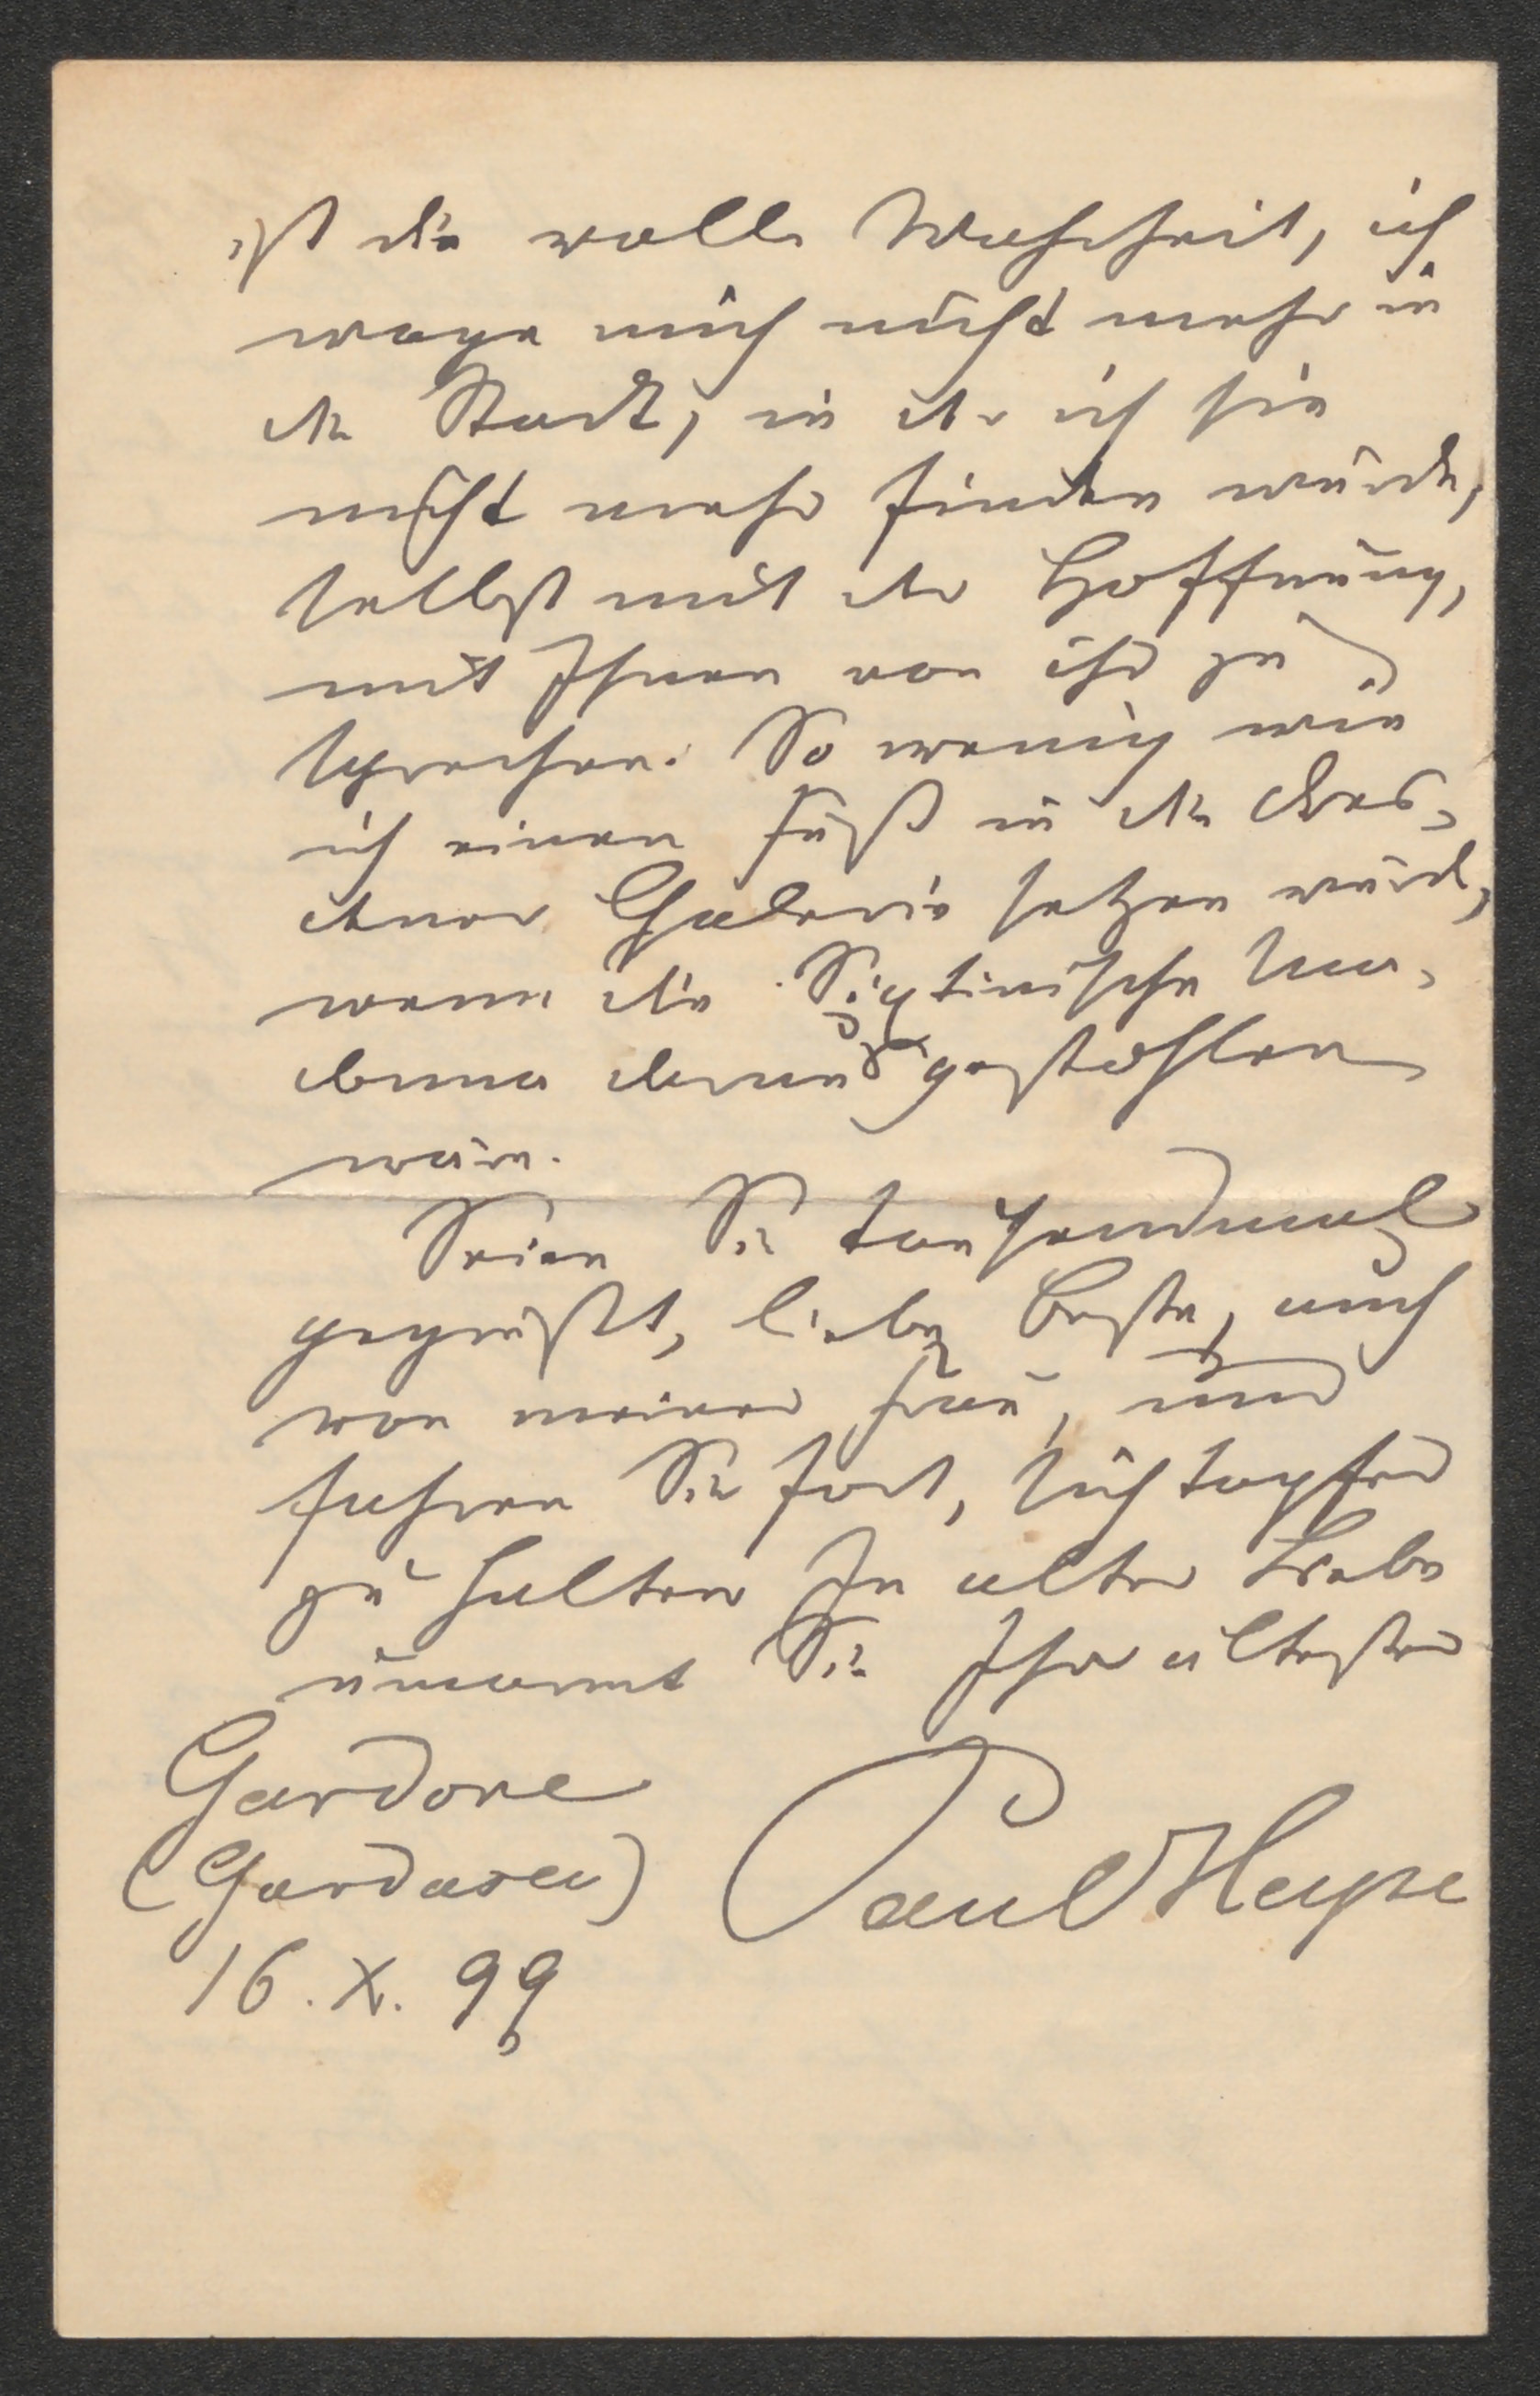 ist die volle Wahrheit, ich
wage mich nicht mehr in
die Stadt, in der ich sie
nicht mehr finden würde,
selbst mit der Hoffnung,
mit Ihnen von ihr zu
sprechen. So wenig wie
ich einen Fuß in die Dres-
dener Galerie setzen würde,
wenn die Sixtinische Ma-
donna daraus gestohlen
wäre.
Seien Sie tausendmal
gegrüßt, liebe Beste, auch
von meiner Frau, und
fahren Sie fort, sich tapfer
zu halten. In alter Liebe
umarmt Sie Ihr ältester
Gardone
(Gardasee) Paul Heyse
16. X. 99